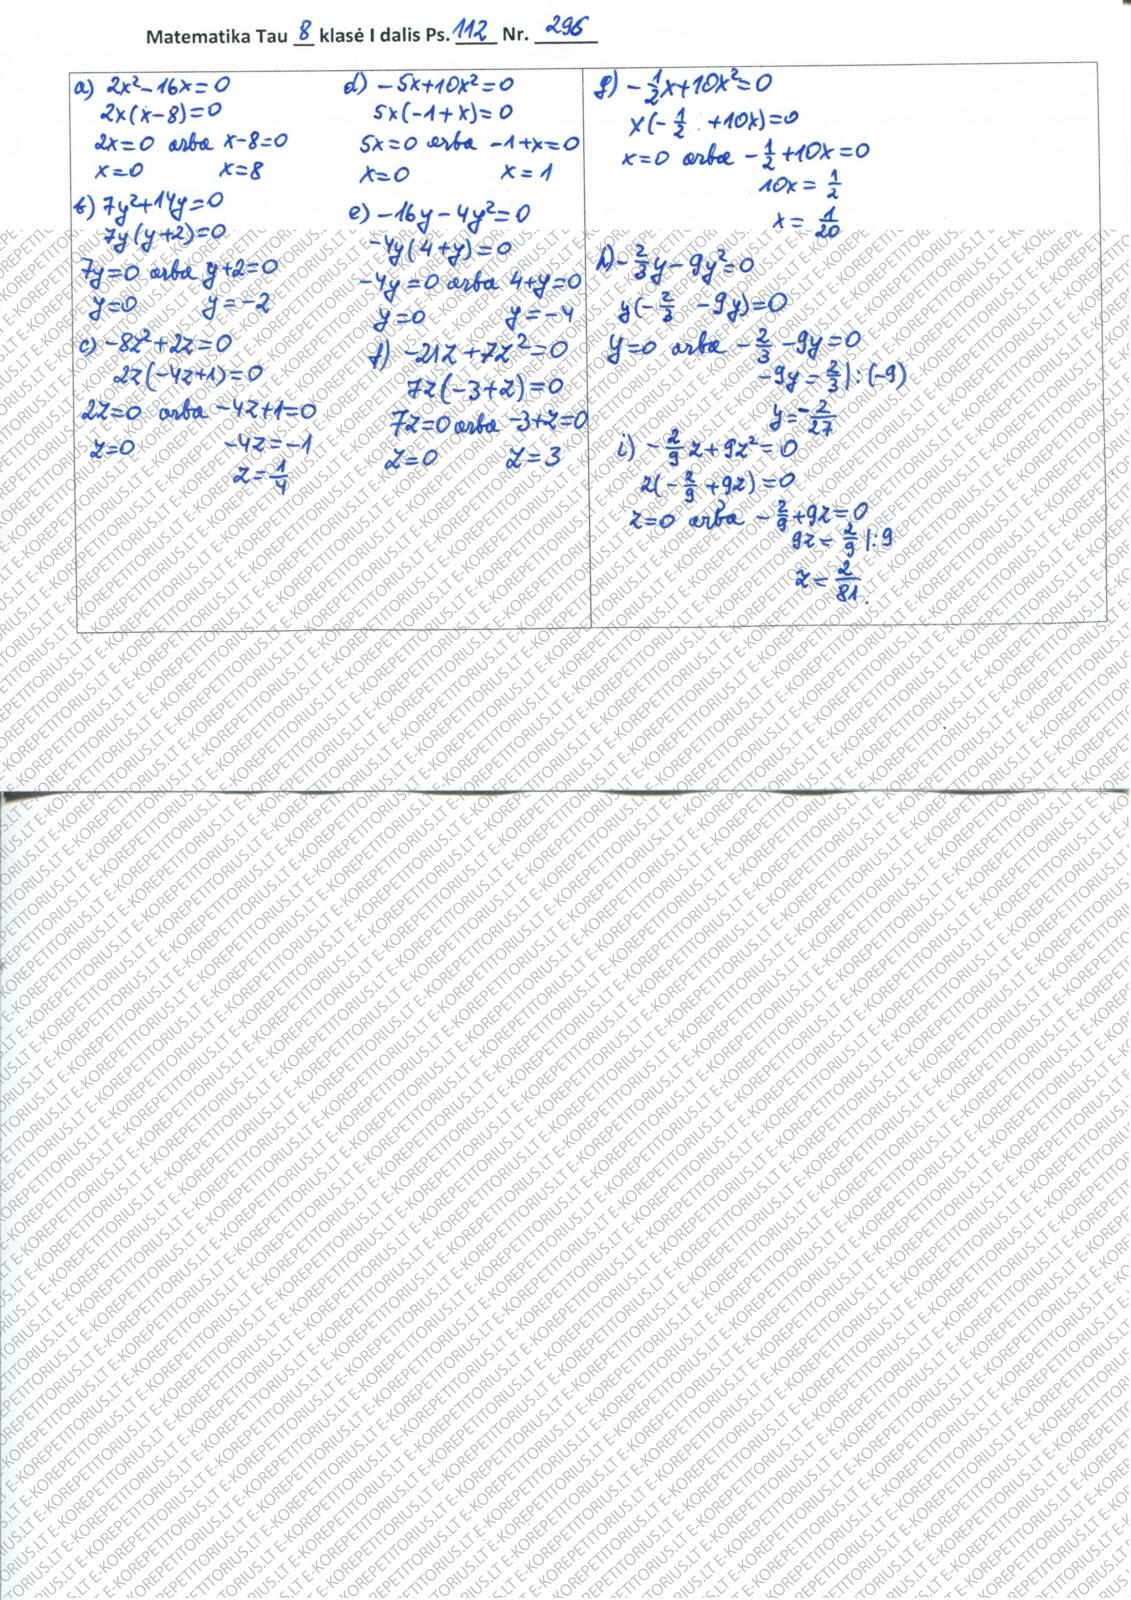 Matematika Tau 8 klasė I dalis Ps. 112 Nr. 296
a) 2x²-16x=0
2x(x-8)=0
2x=0 arba x-8=0
x=0 x=8
b) 7y²+14y=0
7y(y+2)=0
7y=0 arba y+2=0
y=0 y=-2
c) -8z²+2z=0
2z(-4z+1)=0
2z=0 arba -4z+1=0
z=0 -4z=-1
z=1/4
d) -5x+10x²=0
5x(-1+x)=0
5x=0 arba -1+x=0
x=0 x=1
e) -16y-4y²=0
-4y(4+y)=0
-4y=0 arba 4+y=0
y=0 y=-4
f) -21z+7z²=0
7z(-3+z)=0
7z=0 arba -3+z=0
z=0 z=3
g) -1/2x+10x²=0
x(-1/2 +10x)=0
x=0 arba -1/2+10x=0
10x=1/2
x=1/20
h) -2/3y-9y²=0
y(-2/3 -9y)=0
y=0 arba -2/3-9y=0
-9y=2/3|:(-9)
y=-2/27
i) -2/9z+9z²=0
z(-2/9+9z)=0
z=0 arba -2/9+9z=0
9z=2/9|:9
z=2/81.
E-KOREPETITORIUS.LT